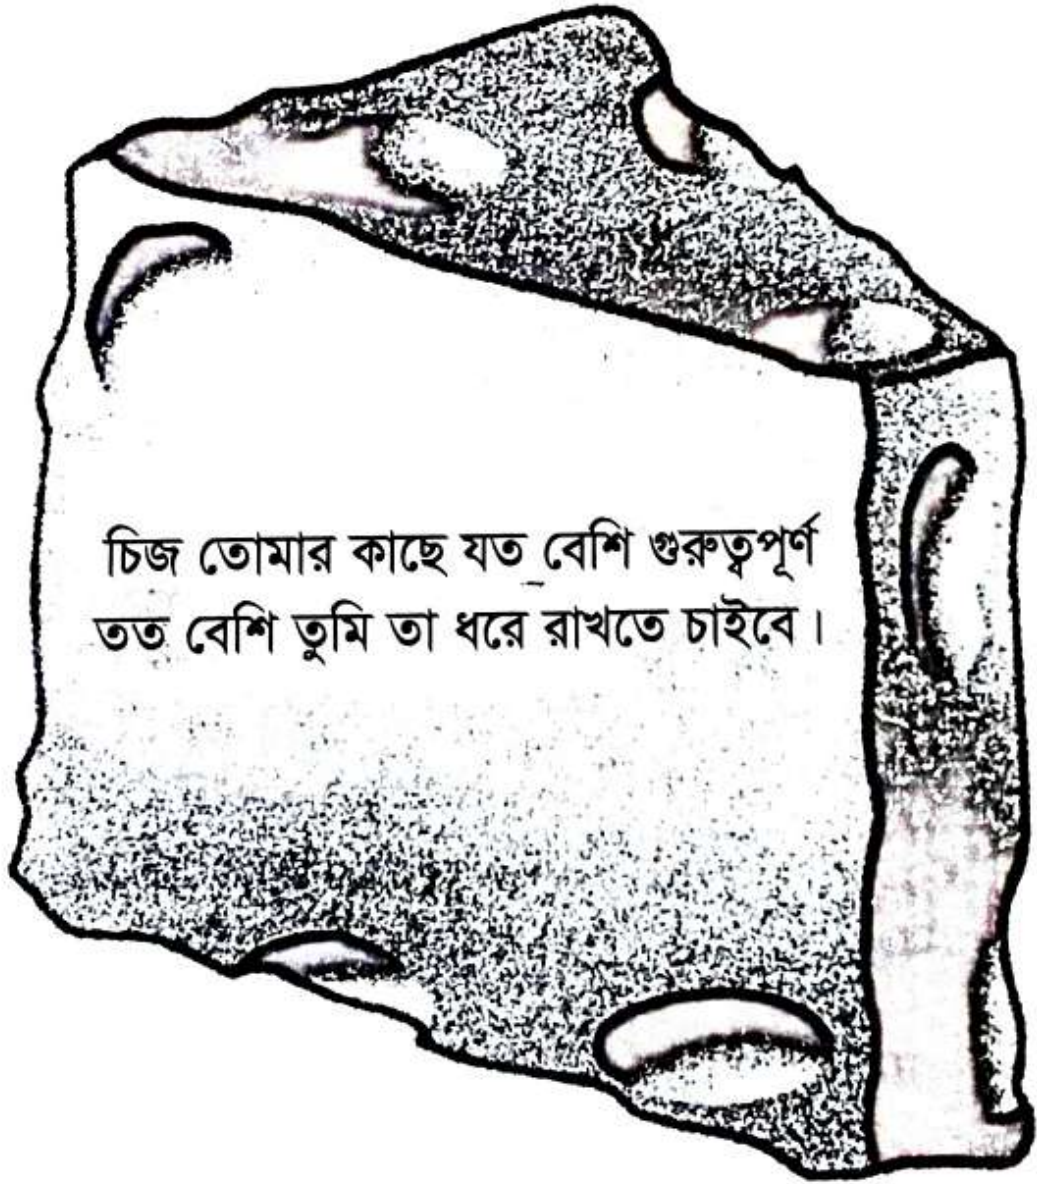 চিজ তোমার কাছে যত বেশি গুরুত্বপূর্ণ
তত বেশি তুমি তা ধরে রাখতে চাইবে।